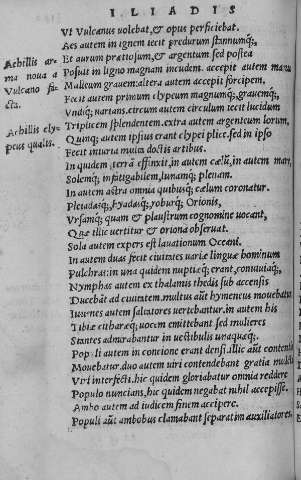 ILIADIS
VT Vulcanus uolebat, & opus perficiebat.
Aes autem in ignem iecit predurum stannumq́;,
Et aurum prætiosum, & argentum sed posita
Posuit in ligno magnam incudem. accepit autem manu
Malleum grauem: altera autem accepit forcipem,
Fecit autem primum clypeum magnumq́;, grauemq́;,
Vndiq; uarians. circum autem circulum iecit lucidum
Triplicem splendentem. extra autem argenteum lorum,
Quinq; autem ipsius erant clypei plicæ. sed in ipso
Fecit intus multa doctis artibus.
In quidem terrā effinxit, in autem cælū, in autem mare,
Solemq́; infatigabilem, lunamq́; plenam.
In autem astra omnia quibusq́; cælum coronatur.
Pleiadasq́;, hyadasq́;, roburq́; Orionis,
Vrsamq́; quam & plaustrum cognomine uocant,
Quæ illic uertitur & oriona obseruat.
Sola autem expers est lauationum Oceani.
In autem duas fecit ciuitates uariæ linguæ hominum
Pulchras: in una quidem nuptiæq́; erant, conuiuiaq́;,
Nymphas autem ex thalamis thedis sub accensis
Ducebāt ad ciuitatem. multus aūt hymeneus mouebatur
Iuuenes autem saltatores uertebantur. in autem his
Tibiæ citharæq́; uocem emittebant sed mulieres
Stantes admirabantur in uestibulis unaquæq́;.
Populi autem in concione erant densi. illic aūt contentio
Mouebatur. duo autem uiri contendebant gratia mulctæ
Viri interfecti. hic quidem gloriabatur omnia reddere
Populo nuncians, hic quidem negabat nihil accepisse.
Ambo autem ad iudicem finem accipere.
Populi aūt ambobus clamabant separatim auxiliatores.
Achillis ar
ma noua a
Vulcano fa
cta.
Achillis cly
peus qualis.